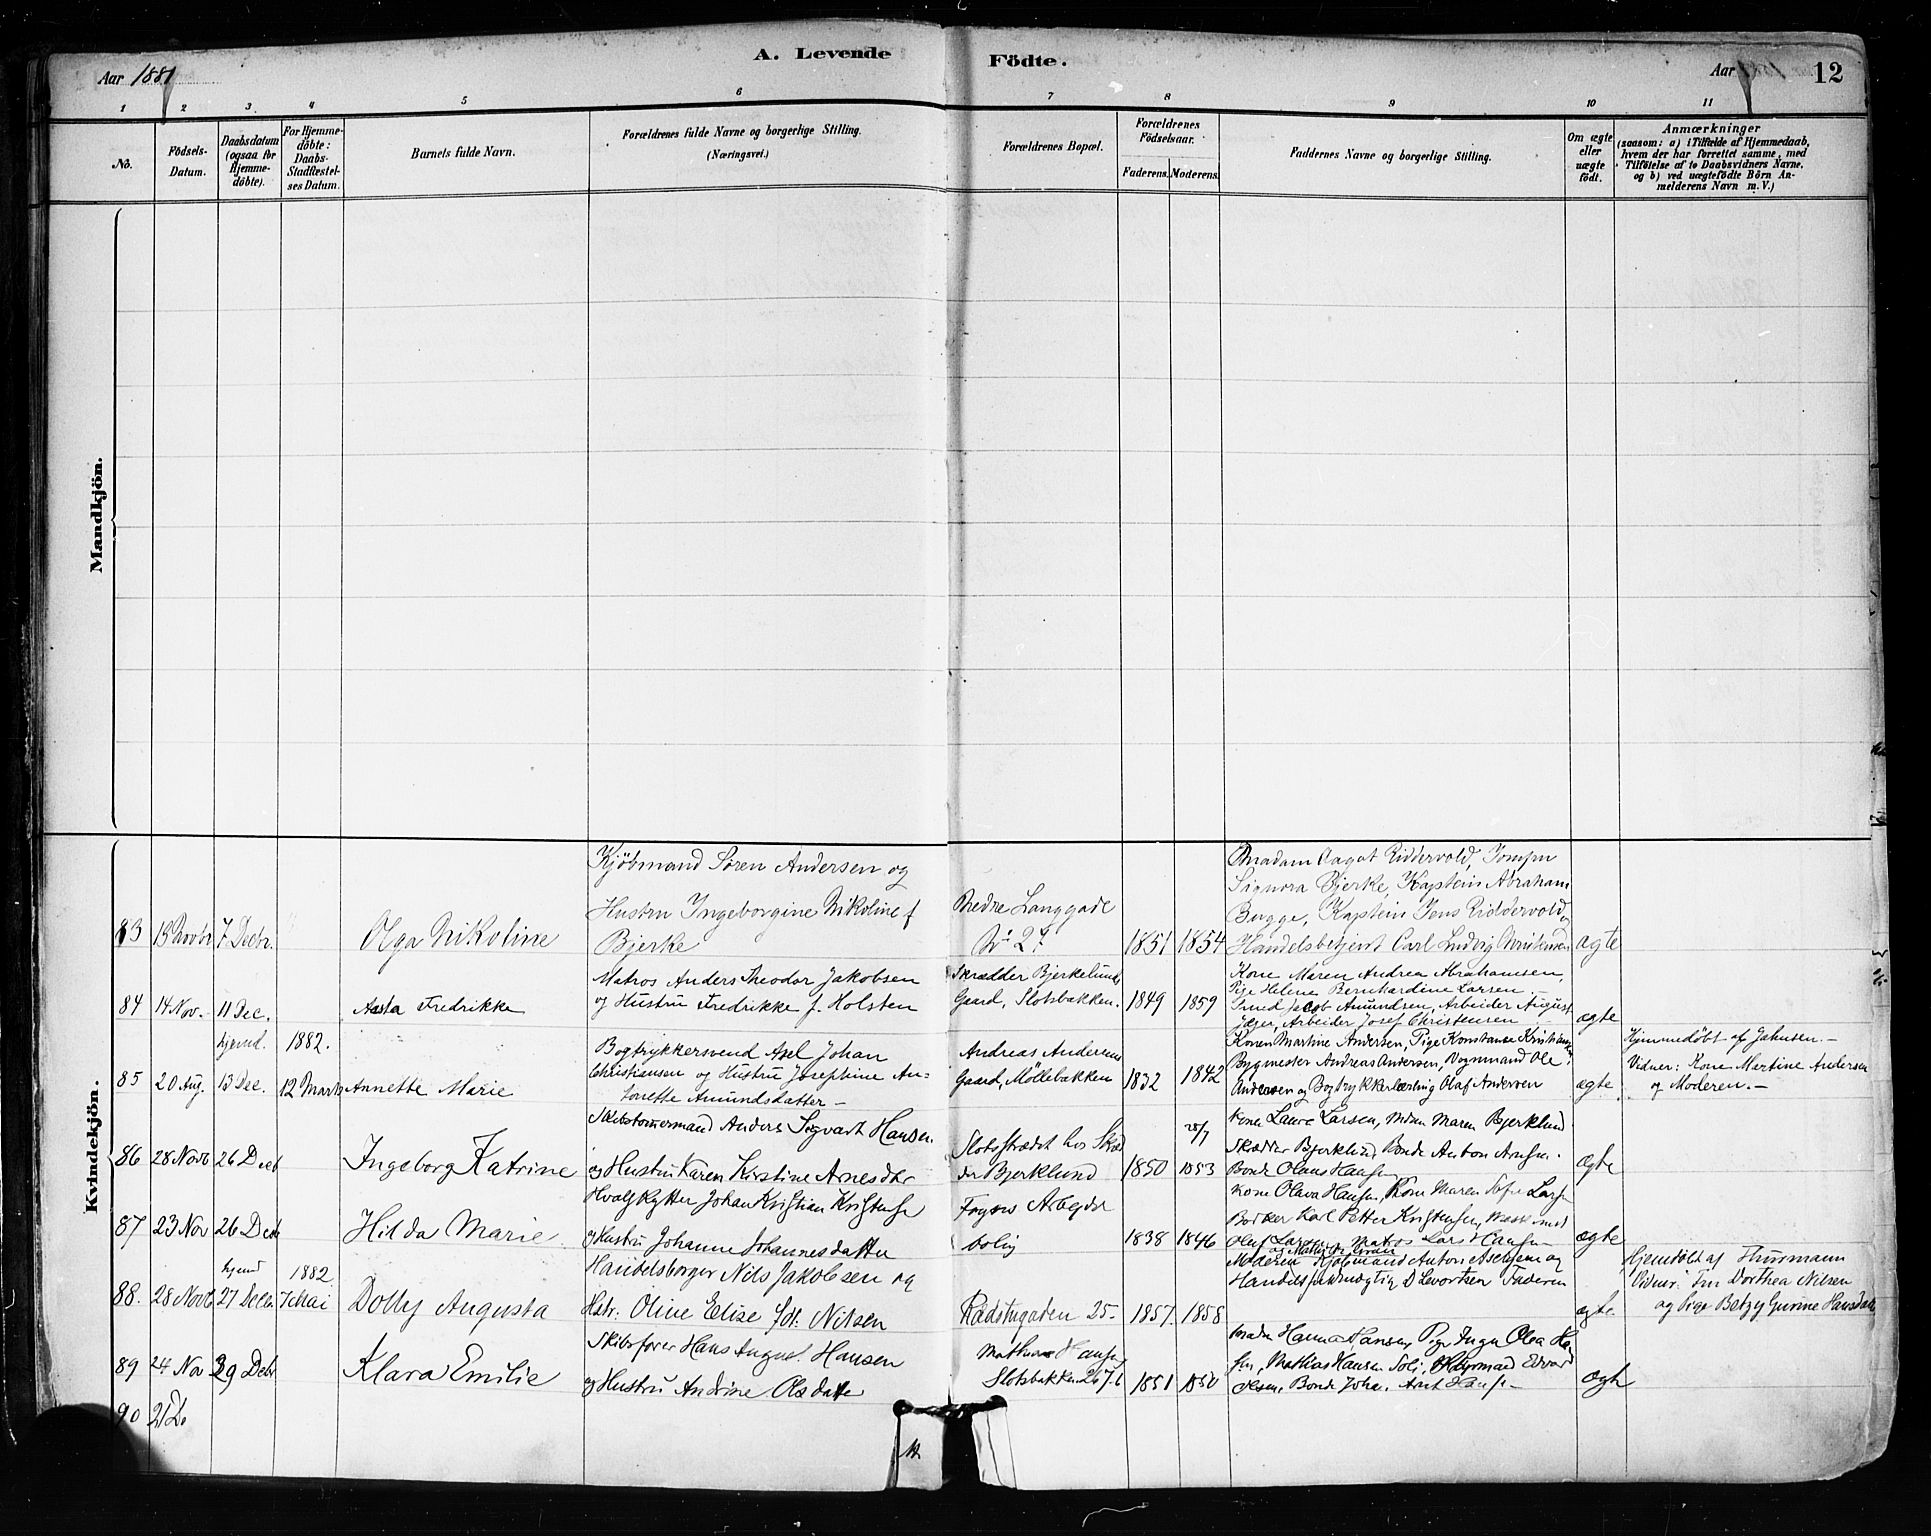 A. Levende Födte.
Aar 1881
Aar
12
1 2 3 4 5 6 7 8 9 10 11
No.
Födsels-Datum.
Daabsdatum (ogsaa for Hjemme-döbte).
For Hjemme-döbte: Daabs-Stadfæstel-ses Datum.
Barnets fulde Navn.
Forældrenes fulde Navne og borgerlige Stilling. (Næringsvei.)
Forældrenes Bopæl.
Forældrenes Födselsaar.
Faderens. Moderens.
Faddernes Navne og borgerlige Stilling.
Om ægte eller uægte födt.
Anmærkninger
(saasom: a) i Tilfælde af Hjemmedaab, hvem der har forrettet samme, med Tilföielse af to Daabsvidners Navne, og b) ved uægtefödte Börn An-melderens Navn m. V.)
Mandkjön.
Kvindekjön.
83 13 Novbr 7 Decbr. Olga Nikoline
Kjöbmand Sören Andersen og
Hustru Ingeborgine Nikoline f
Bjerke
Nedre Langgade
No 27
1851 1854
Madam Aagot Riddervold, Jomfru
Signora Bjerke, Kaptein Abraham
Bugge, Kaptein Jens Riddervold,
Handelsbetjent Carl Ludvig Christensen
ægte
84 14 Nov. 11 Dec. Aasta Fredrikke
Matros Anders Theodor Jakobsen
og Hustru Fredrikke f. Holsten
Skrædder Bjerkelunds
Gaard, Slotsbakken.
1849 1859
Kone Maren Andrea Abrahamsen,
Pige Helene Bernhardine Larsen.-
Smed Jacob Amundsen, Arbeider August
Jæger, Arbeider Josef Christensen
ægte
85 20 Aug. hjemd. 13 Dec. 1882. 12 Marts Annette Marie
Bogtrykkersvend Axel Johan
Christiansen og Hustru Josephine An=
tonette Amundsdatter -
Andreas Andersens
Gaard, Möllebakken
1832 1842
Konen Martine Andersen, Pige Konstanse Kristiansen
Bygmester Andreas Andersen, Vognmand Ole
Andersen og Bogtrykkerlærling Olaf Andersen
ægte
Hjemmedöbt af Jahnsen.-
Vidner: Kone Martine Andersen
og Moderen.-
86 28 Novb 26 Decb Ingeborg Katrine
Skibstömmermand Anders Sigvart Hansen
og Hustru Karen Kirstine Arnesdtr
Slotsstrædet hos Skræd
der Bjerklund
1850 1853
Kone Laura Larsen, Mdm Maren Bjerklund
Skrædder Bjerklund Bonde Anton Arnsen.
Bonde Olaus Hansen
Ægte
87 23 Nov 26 Decb Hilda Marie
Hvalskytter Johan Kristian Kristensen
og Hustru Johanne Johannesdatter
Foyns Arbejder
bolig
1838 1846
Kone Olava Hansen, Kone Maren Sofie Larsen
Bödker Karl Petter Kristensen,
Oluf Larsen, Matros Lars Hansen
ægte
88. 28 Novb hjemd 27 Decbr 1882 7 Mai Dolly Augusta
Handelsborger Nils Jakobsen og
Hstr: Oline Elise fdt. Nilsen
Raadstugaden 25.
1857. 1858
Moderen Kjöbmand Anton Aschjem og
Handelsfuldmægtig D Levortsen Faderen
ægte
Hjemdöbt af Thurmann
Vidner: Fru Dorthea Nilsen
og Pige Betzy Gurine Hansdatter
89 24 Nov 29 Decbr Klara Emilie
Skibsförer Hans August Hansen
og Hustru Andrine Olsdatter
Mathias Hansen
Slotsbakken 267.b
1851 1850
Madm Hanna Hansen, Pige Inga Olea Han
sen, Mathias Hansen Soli, Edvard
Olsen, Bonde Joha. Arnt Hansen
ægte
90 21 D
12